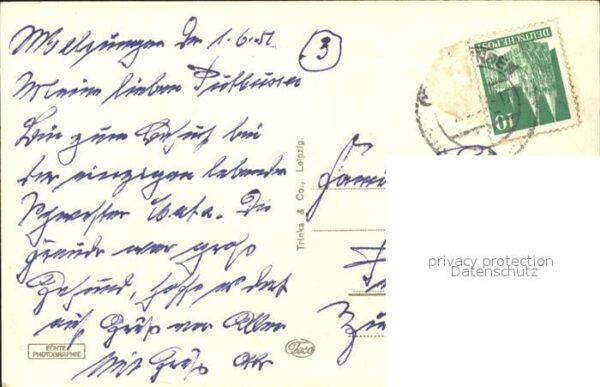 Melsungen den 1.6.51.
3
Meine lieben
Bin zum Besuch bei
der einzigen lebenden
Schwester Die
Freude war groß
Gesund, hoffe es dort
auch Grüß von Allen
Mit Gruß
Trinks & Co., Leipzig.
ECHTE
PHOTOGRAPHIE
Trico
DEUTSCHE POST
10
Fami
privacy protection
Datenschutz